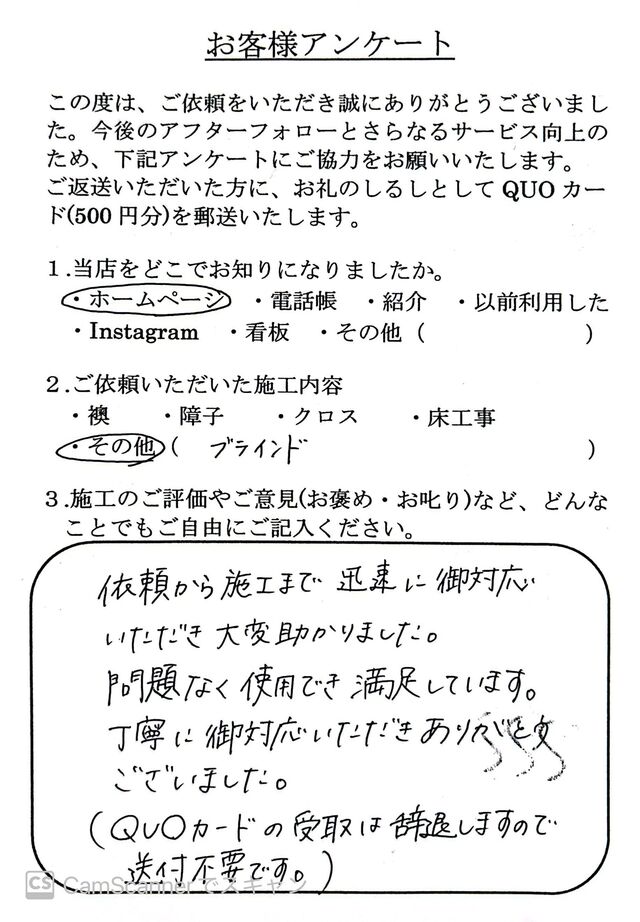 お客様アンケート
この度は、ご依頼をいただき誠にありがとうございまし
た。今後のアフターフォローとさらなるサービス向上の
ため、下記アンケートにご協力をお願いいたします。
ご返送いただいた方に、お礼のしるしとして QUO カー
ド(500 円分)を郵送いたします。
１.当店をどこでお知りになりましたか。
・ホームページ ・電話帳 ・紹介 ・以前利用した
・Instagram ・看板 ・その他 ( )
２.ご依頼いただいた施工内容
・襖 ・障子 ・クロス ・床工事
・その他 ( ブラインド )
３.施工のご評価やご意見(お褒め・お叱り)など、どんな
ことでもご自由にご記入ください。
依頼から施工まで 迅速に御対応
いただき 大変助かりました。
問題なく使用でき 満足しています。
丁寧に御対応いただき ありがとう
ございました。
(QUOカードの受取は辞退しますので
送付不要です。)
CS CamScanner でスキャン